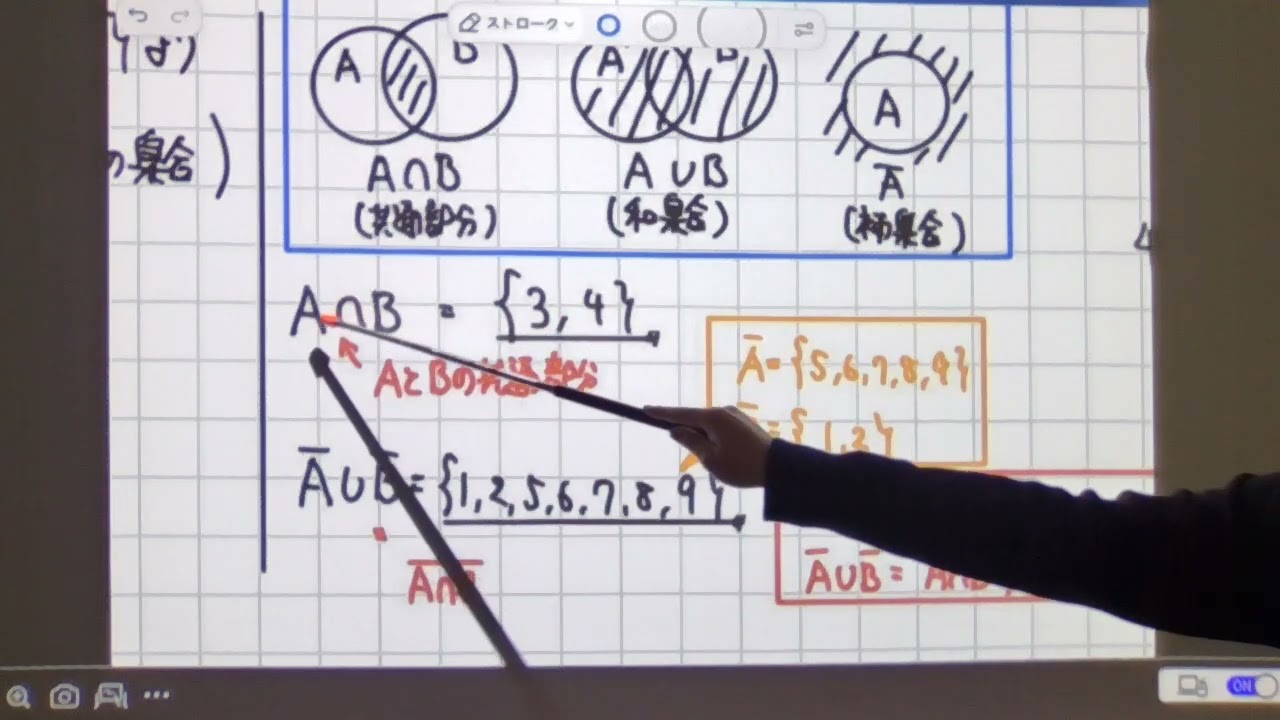 ストローク
の集合)
A B
A∩B
(共通部分)
A B
A∪B
(和集合)
A
A̅
(補集合)
A∩B = {3, 4}
AとBの共通部分
A̅={5,6,7,8,9}
={1,2}
A̅∪B̅={1,2,5,6,7,8,9}
A̅∪B̅=
ON